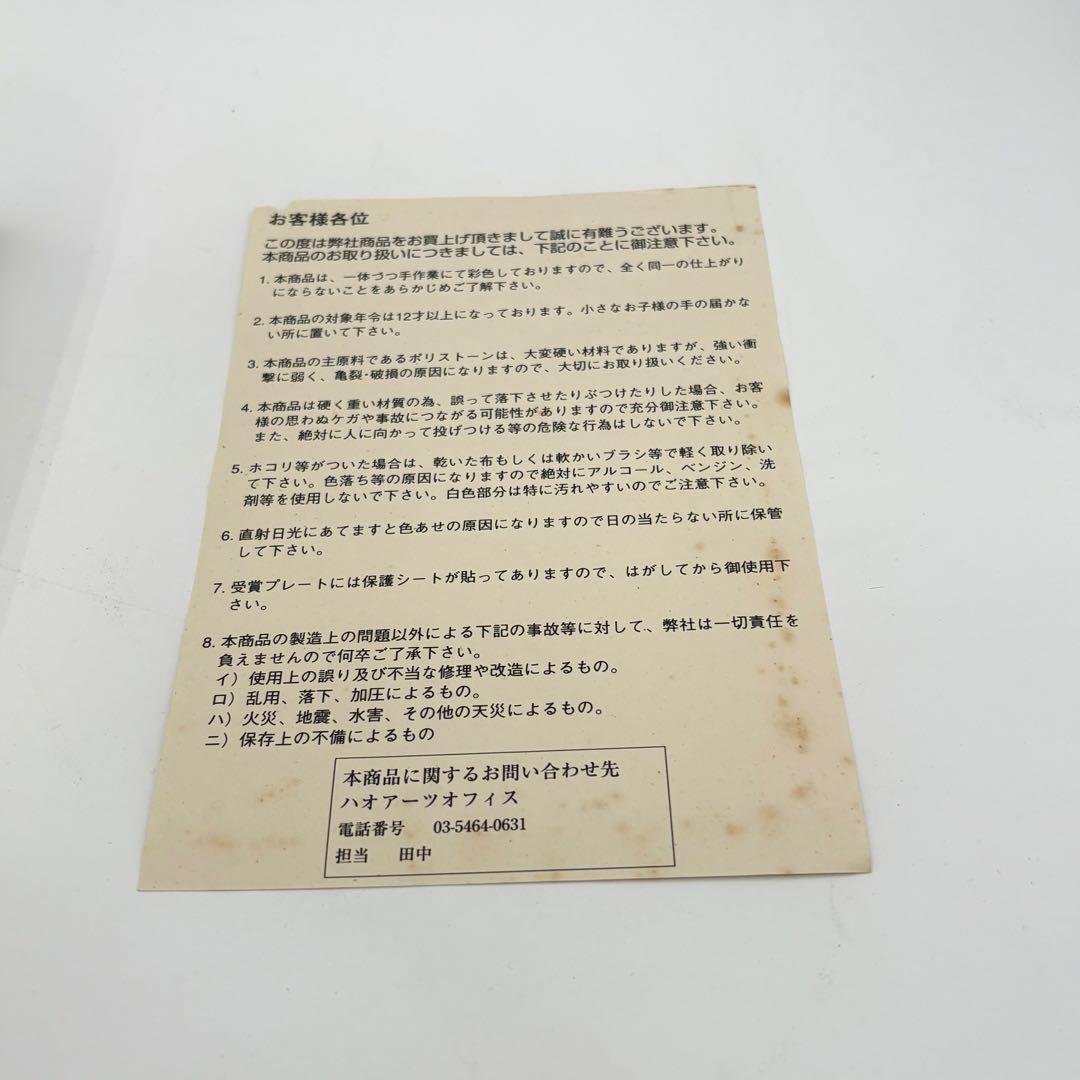 お客様各位
この度は弊社商品をお買上げ頂きまして誠に有難うございます。
本商品のお取り扱いにつきましては、下記のことに御注意下さい。
1. 本商品は、一体づつ手作業にて彩色しておりますので、全く同一の仕上がり
にならないことをあらかじめご了解下さい。
2. 本商品の対象年令は12才以上になっております。小さなお子様の手の届かな
い所に置いて下さい。
3. 本商品の主原料であるポリストーンは、大変硬い材料でありますが、強い衝
撃に弱く、亀裂・破損の原因になりますので、大切にお取り扱いください。
4. 本商品は硬く重い材質の為、誤って落下させたりぶつけたりした場合、お客
様の思わぬケガや事故につながる可能性がありますので充分御注意下さい。
また、絶対に人に向かって投げつける等の危険な行為はしないで下さい。
5. ホコリ等がついた場合は、乾いた布もしくは軟かいブラシ等で軽く取り除い
て下さい。色落ち等の原因になりますので絶対にアルコール、ベンジン、洗
剤等を使用しないで下さい。白色部分は特に汚れやすいのでご注意下さい。
6. 直射日光にあてますと色あせの原因になりますので日の当たらない所に保管
して下さい。
7. 受賞プレートには保護シートが貼ってありますので、はがしてから御使用下
さい。
8. 本商品の製造上の問題以外による下記の事故等に対して、弊社は一切責任を
負えませんので何卒ご了承下さい。
イ）使用上の誤り及び不当な修理や改造によるもの。
ロ）乱用、落下、加圧によるもの。
ハ）火災、地震、水害、その他の天災によるもの。
ニ）保存上の不備によるもの
本商品に関するお問い合わせ先
ハオアーツオフィス
電話番号 03-5464-0631
担当 田中